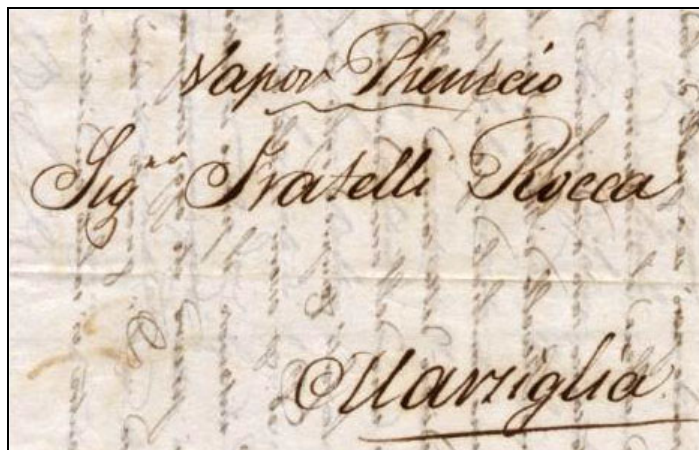 Vapor Phenicio
Sig.ri Fratelli Rocca
Marziglia